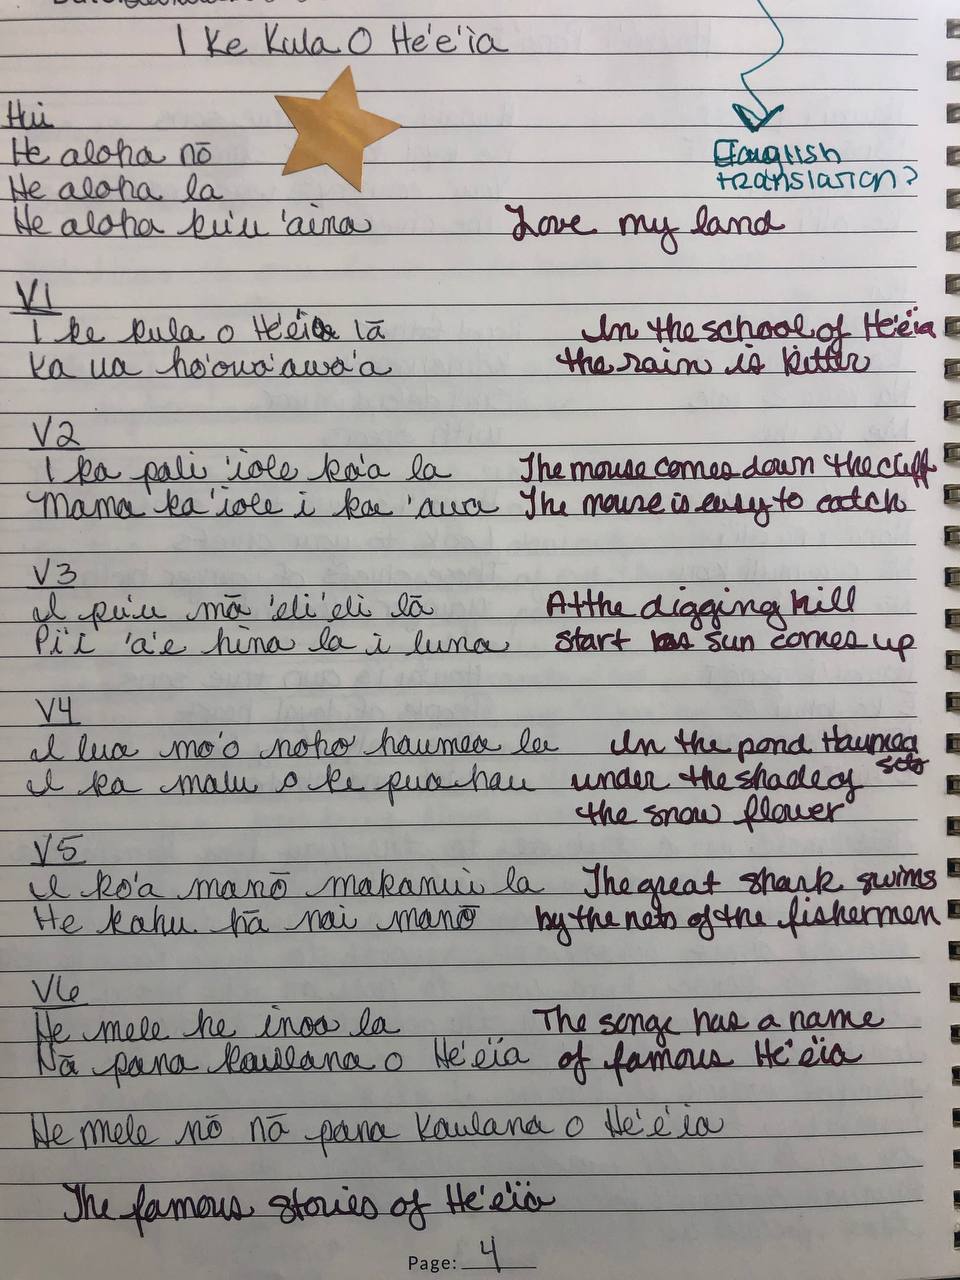 I Ke Kula O He'e'ia
Hui
He aloha nō
He aloha la
He aloha ku'u 'aina Love my land
English
translation?
V1
I ke kula o He'e'ia lā In the school of He'e'ia
Ka ua ho'oua'awa'a the rain is bitter
V2
I ka pali 'iole ka'a la The mouse comes down the cliff
Mama ka 'iole i ka 'aua The mouse is easy to catch
V3
I pu'u mā 'eli'eli lā At the digging hill
Pi'i 'a'e hina la i luna start sun comes up
V4
I lua mo'o noho haumea la In the pond Haumea
sits
I ka malu o ke pua hau under the shade of
the snow flower
V5
I ko'a manō makanui la The great shark swims
He kahu hā nai manō by the nets of the fishermen
V6
He mele he inoa la The songe has a name
Nā pana kaulana o He'e'ia of famous He'e'ia
He mele nō nā pana kaulana o He'e'ia
The famous stories of He'e'ia
Page: 4